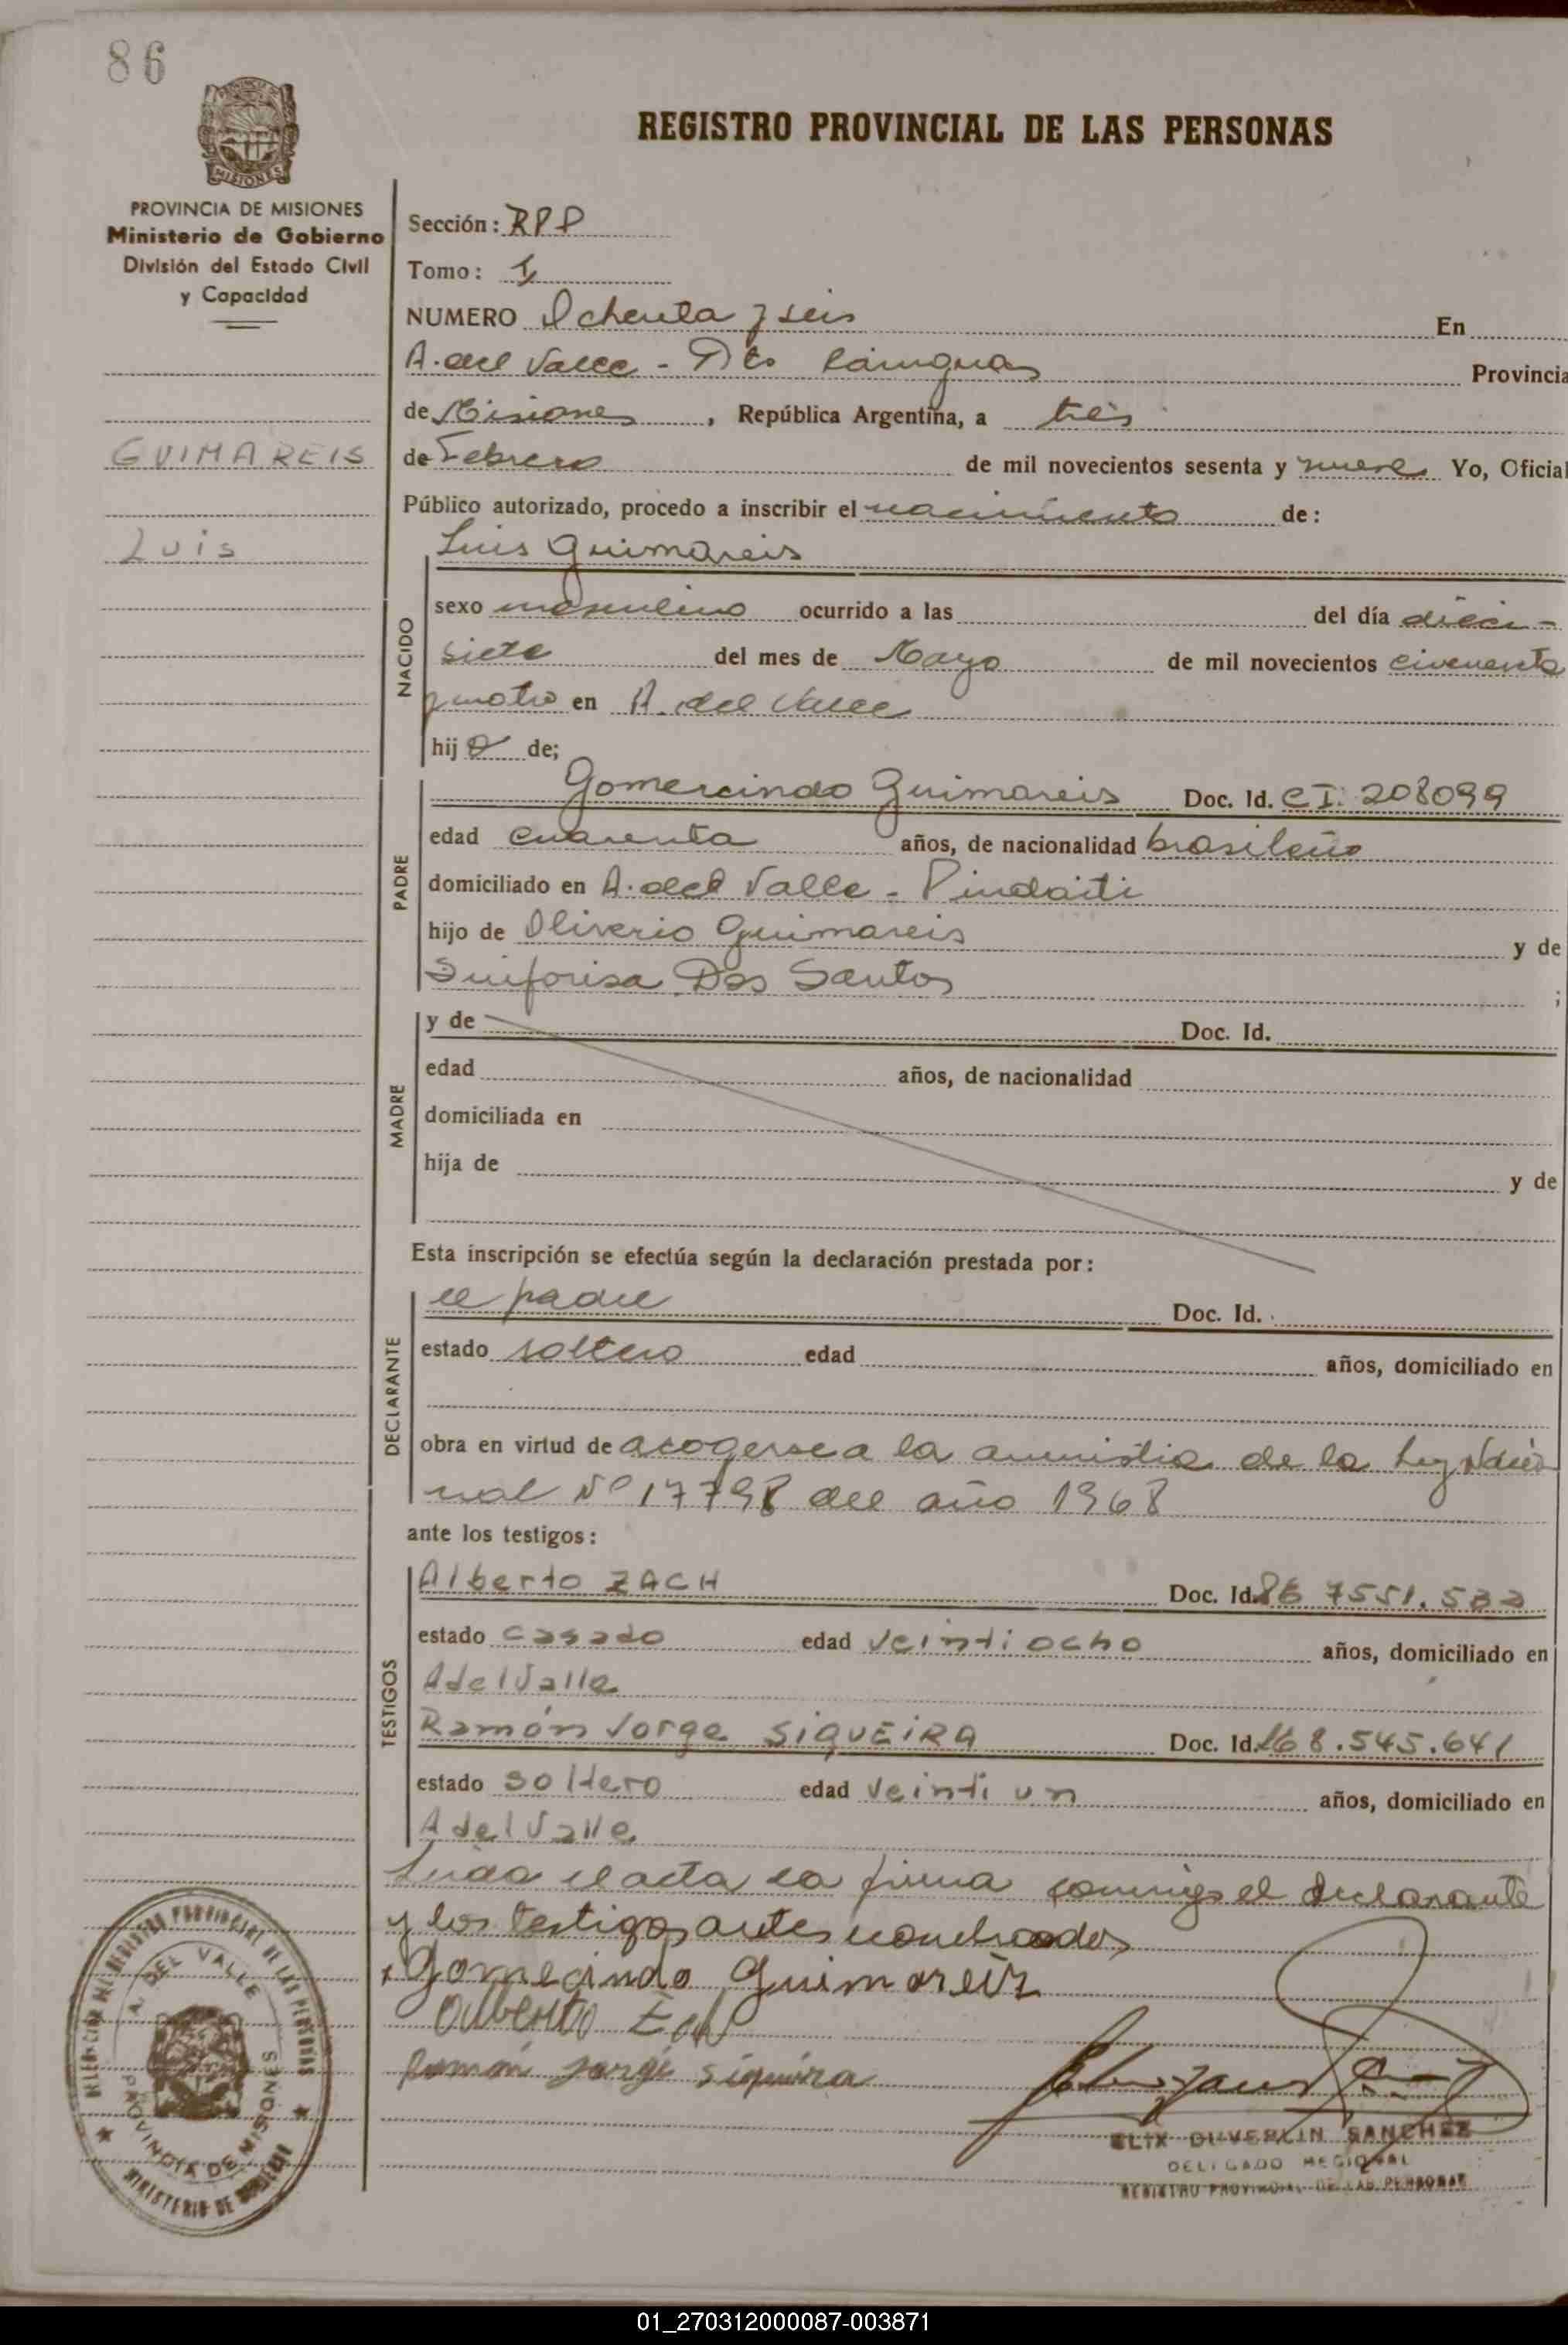 86
MISIONES
REGISTRO PROVINCIAL DE LAS PERSONAS
PROVINCIA DE MISIONES
Ministerio de Gobierno
División del Estado Civil
y Capacidad
GUIMAREIS
Luis
Sección: RPP
Tomo: 1
NUMERO Ochenta y seis En
A. del Valle - Dto Cainguas Provincia
de Misiones, República Argentina, a tres
de Febrero de mil novecientos sesenta y nueve Yo, Oficial
Público autorizado, procedo a inscribir el nacimiento de:
NACIDO
Luis Guimareis
sexo masculino ocurrido a las del día dieci-
siete del mes de Mayo de mil novecientos cincuenta
y cuatro en A. del Valle
hijo de;
PADRE
Gomercindo Guimareis Doc. Id. CI. 208099
edad cuarenta años, de nacionalidad brasileño
domiciliado en A. del Valle - Pindaiti
hijo de Oliverio Guimareis y de
Sinforisa Dos Santos ;
MADRE
y de Doc. Id.
edad años, de nacionalidad
domiciliada en
hija de y de
Esta inscripción se efectúa según la declaración prestada por:
DECLARANTE
el padre Doc. Id.
estado soltero edad años, domiciliado en
obra en virtud de acogerse a la amnistia de la Ley Nacio
nal Nº 17798 del año 1968
ante los testigos:
TESTIGOS
Alberto ZACH Doc. Id. 7551.532
estado casado edad veintiocho años, domiciliado en
A del Valle
Ramón Jorge SIQUEIRA Doc. Id. 8.545.641
estado soltero edad veinti un años, domiciliado en
A del Valle
Leida el acta la firma conmigo el declarante
y los testigos antes nombrados
x Gomecindo Guimareis
Alberto
Ramón Jorge Siqueira
DELEGACION DEL REGISTRO PROVINCIAL DE LAS PERSONAS
A. DEL VALLE
PROVINCIA DE MISIONES
MINISTERIO DE GOBIERNO
ELIX DUVERLIN SANCHEZ
DELEGADO REGIONAL
REGISTRO PROVINCIAL DE LAS PERSONAS
01_270312000087-003871